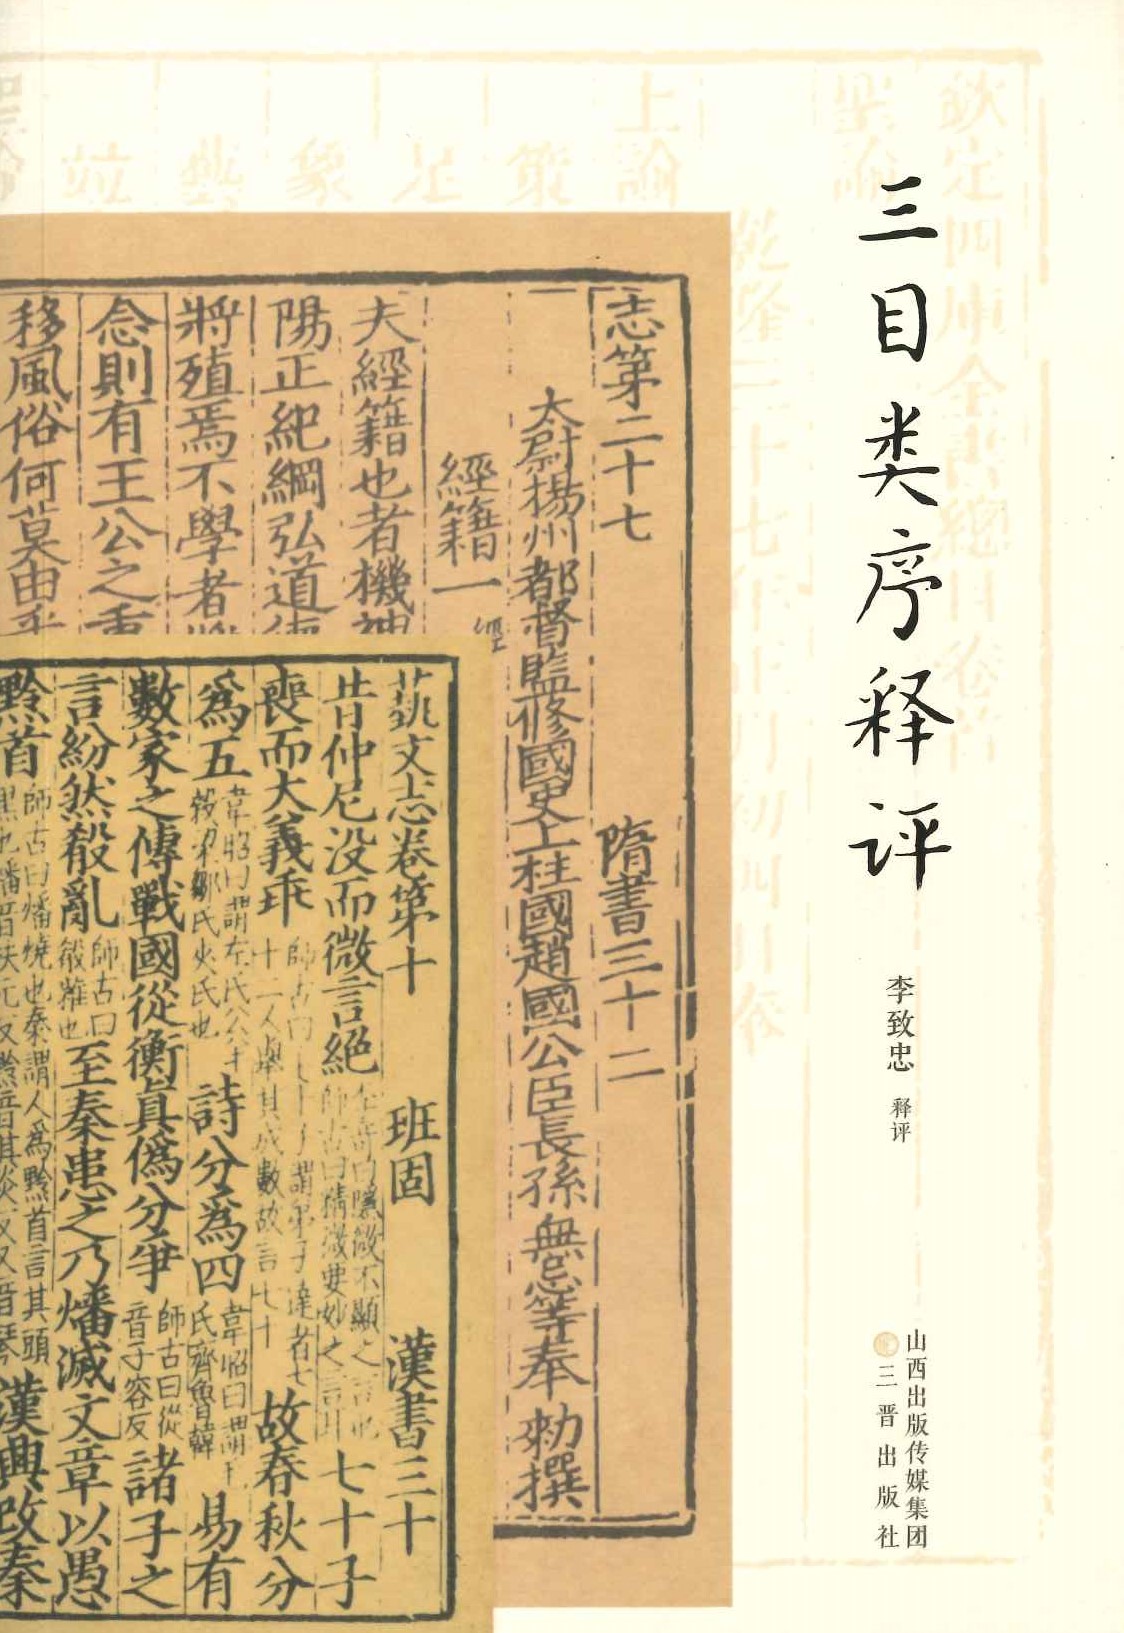 三目类序释评
李致忠 释评
山西出版传媒集团
三晋出版社
欽定四庫全書總目卷首
聖諭
乾隆三十七年正月初四日奉
上諭
志第二十七 隋書三十二
太尉揚州都督監修國史上柱國趙國公臣長孫無忌等奉 勑撰
經籍一 經
夫經籍也者機神
陽正紀綱弘道德
將殖焉不學者將
念則有王公之重
移風俗何莫由乎
藝文志卷第十 班固 漢書三十
昔仲尼没而微言絶 李奇曰隱微不顯之言也師古曰精微要妙之言耳 七十子
喪而大義乖 師古曰七十子謂弟子達者七十二人舉其成數故言七十 故春秋分
爲五 韋昭曰謂左氏公羊穀梁鄒氏夾氏也 詩分爲四 韋昭曰謂毛氏齊魯韓 易有
數家之傳戰國從衡眞僞分爭 師古曰從音子容反 諸子之
言紛然殽亂 師古曰殽雜也 至秦患之乃燔滅文章以愚
黔首 師古曰燔燒也秦謂人爲黔首言其頭黑也燔音扶元反黔音其炎反又音琴 漢興改秦